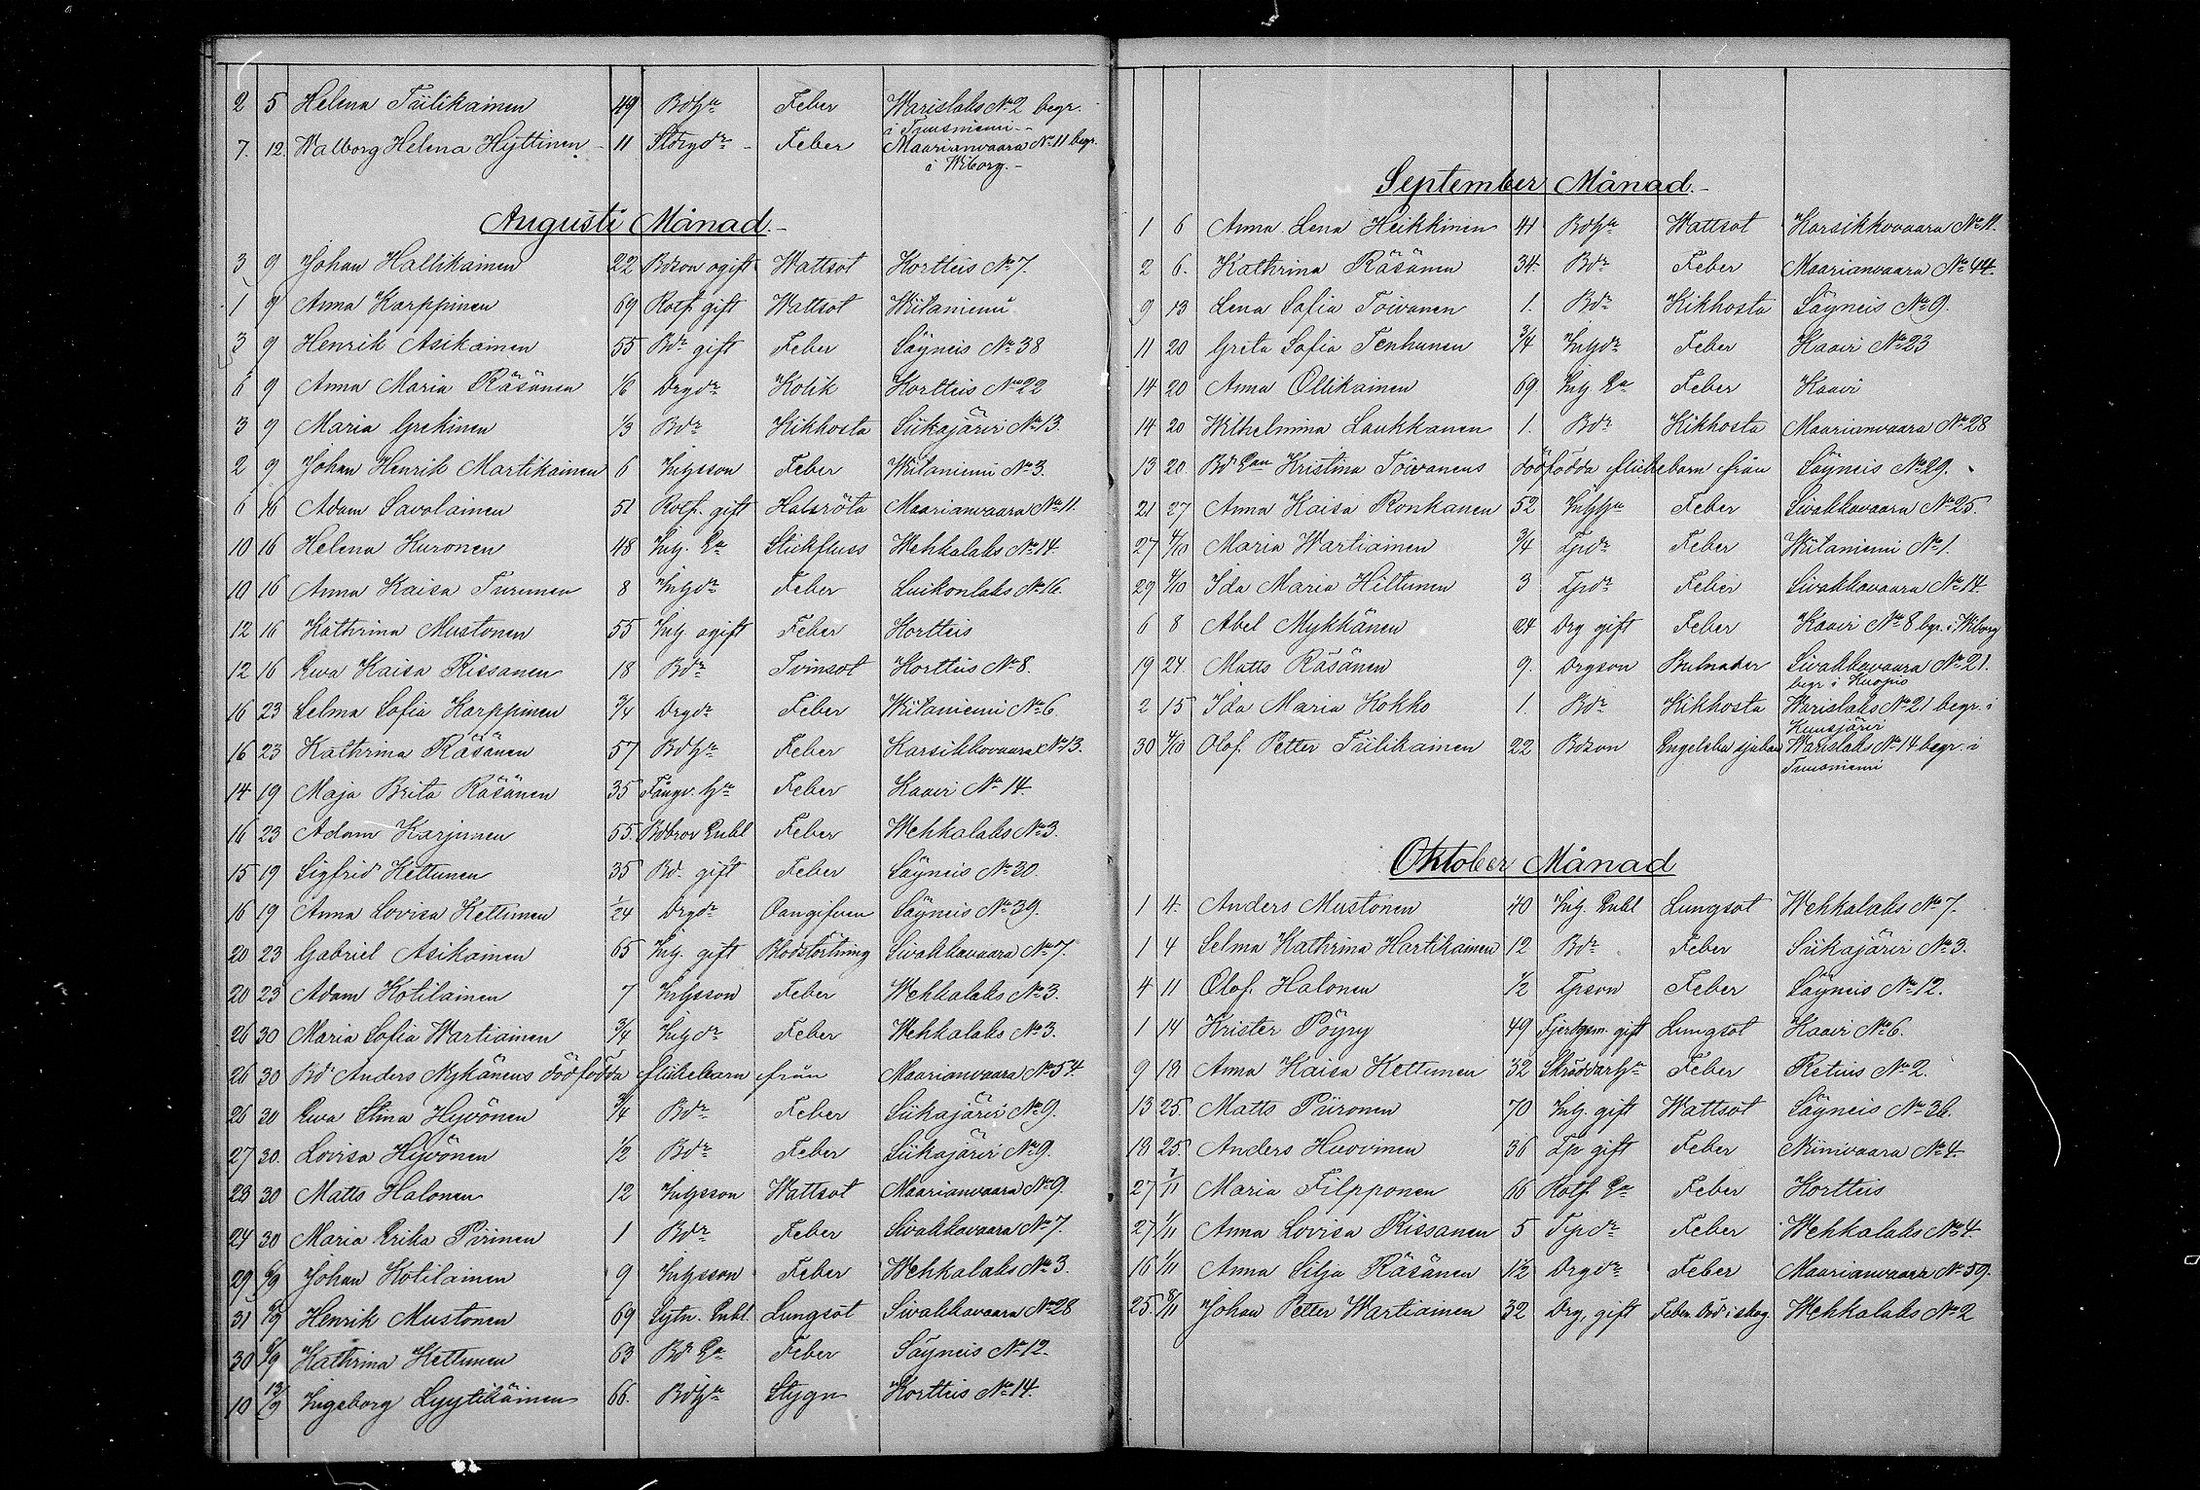 2 5 Helena Tiilikainen 49 Bdh:u Feber Warislaks No 2 begr.
i Tuusniemi
7. 12. Walborg Helena Hyttinen 11 Feber Maarianvaara No 11 begr.
i Wiborg.
Augusti Månad.
3 9 Johan Hallikainen 22 Bdson ogift Wattsot Kortteis No 7.
1 9 Anna Karppinen 69 Rotf. gift Wattsot Wiitaniemi
3 9 Henrik Asikainen 55 Bdr gift Feber Säyneis No 38
6 9 Anna Maria Räsänen 1/6 Drgdr Kolik Kortteis No 22
3 9 Maria Grekinen 1/3 Bdr Kikhosta Siikajärvi No 13.
2 9 Johan Henrik Martikainen 6 Inhysson Feber Wiitaniemi No 3.
6 16 Adam Savolainen 51 Rotf. gift Halsröta Maarianvaara No 11.
10 16 Helena Kuronen 48 Inh. Ea Stickfluss Wehkalaks No 14.
10 16 Anna Kaisa Turunen 8 Inhdr Feber Luikonlaks No 16.
12 16 Kathrina Mustonen 55 Inh ogift Feber Kortteis
12 16 Ewa Kaisa Rissanen 18 Bdr Tvinsot Kortteis No 8.
16 23 Selma Sofia Karppinen 3/4 Drgdr Feber Wiitaniemi No 6.
16 23 Kathrina Räsänen 57 Bdhu Feber Karsikkovaara No 13.
14 19 Maja Brita Räsänen 35 Fångv. hu Feber Kaavi No 14.
16 23 Adam Karjunen 55. Bdbror Enkl Feber Wehkalaks No 3.
15 19 Sigfrid Kettunen 35 Bd. gift Feber Säyneis No 30.
16 19 Anna Lovisa Kettunen 1/24 Drgdr Oangifven Säyneis No 39.
20 23 Gabriel Asikainen 65 Inh. gift Blodstörtning Sivakkavaara No 7.
20 23 Adam Kotilainen 7 Inhysson Feber Wehkalaks No 3.
26 30 Maria Sofia Wartiainen 3/4 Inhdr Feber Wehkalaks No 3.
26 30 Bd Anders Nykänens dödfödda flickebarn från Maarianvaara No 54.
26 30 Ewa Stina Hyvönen 3/4 Bdr Feber Siikajärvi No 9.
27 30. Lovisa Hyvönen 1/2 Bdr Feber Siikajärvi No 9.
23 30 Matts Halonen 12 Inhysson Wattsot Maarianvaara No 9.
24 30 Maria Erika Piirinen 1 Bdr Feber Sivakkavaara No 7.
29 6/9 Johan Kotilainen 9 Inhysson Feber Wehkalaks No 3.
31 6/9 Henrik Mustonen 69 Sytn. Enkl. Lungsot Sivakkavaara No 28
30 6/9 Kathrina Kettunen 63 Bd Ea Feber Säyneis No 12.
10 13/9 Ingeborg Lyytikäinen 66. Bdhu Stygn Kortteis No 14.
September Månad.
1 6 Anna Lena Heikkinen 41 Bdhu Wattsot Karsikkovaara No 11.
2 6. Kathrina Räsänen 34. Bdr Feber Maarianvaara No 44.
9 13 Lena Sofia Toivanen 1. Bdr Kikhosta Säyneis No 9.
11 20 Greta Sofia Tenhunen 3/4 Inhdr Feber Kaavi No 23
14 20 Anna Ollikainen 69 Inh. Ea Feber Kaavi
14 20 Wilhelmina Laukkanen 1. Bdr Kikhosta Maarianvaara No 28
13 20. Bd Ean Kristina Toivanens dödfödda flickebarn från Säyneis No 29.
21 27 Anna Kaisa Ronkanen 52 Inhhu Feber Sivakkavaara No 25.
27 4/10 Maria Wartiainen 3/4 Tpdr Feber Wiitaniemi No 1.
29 4/10 Ida Maria Hiltunen 3 Tpdr Feber Sivakkavaara No 14.
6 8 Abel Mykkänen 24 Drg gift Feber Kaavi No 8 bgr. i Wiborg
19 24 Matts Räsänen 9. Drgson Bulnader Sivakkavaara No 21.
begr i Kuopio
2 15 Ida Maria Kokko 1. Bdr Kikhosta Warislaks No 21 begr. i
Kuusjärvi
30 4/10 Olof Petter Tiilikainen 22 Bdson Engelska sjukan Warislaks No 14 begr. i
Tuusniemi
Oktober Månad
1 4. Anders Mustonen 40 Inh. Enkl Lungsot Wehkalaks No 7.
1 4 Selma Kathrina Hartikainen 12 Bdr Feber Siikajärvi No 3.
4 11 Olof Halonen 1/2 Tpson Feber Säyneis No 12.
1 14 Krister Pöyry 49 Fjerdgsm. gift Lungsot Kaavi No 6.
9 18 Anna Kaisa Kettunen 32 Skräddarhu Feber Retuis No 2.
13 25. Matts Piironen 70 Inh. gift Wattsot Säyneis No 36.
18 25. Anders Huovinen 36 Tp gift Feber Niinivaara No 4.
27 1/11 Maria Filpponen 66 Rotf. Ea Feber Kortteis
27 1/11 Anna Lovisa Rissanen 5 Tpdr Feber Wehkalaks No 4.
16 1/11 Anna Silja Räsänen 1/2 Drgdr Feber Maarianvaara No 59.
25. 8/11 Johan Petter Wartiainen 32 Drg, gift Feber. Död i skog. Wehkalaks No 2